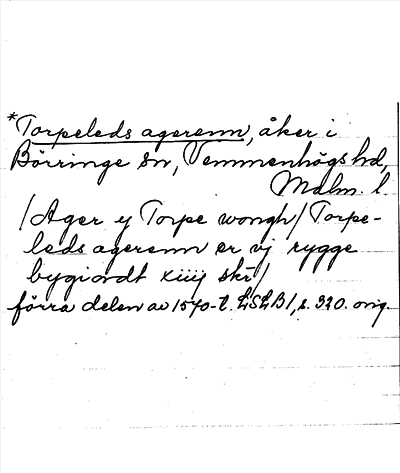 *Torpeleds agerenn, åker i
Börringe sn, Vemmenhögs hd,
Malm. l
/Ager y Torpe wongh/ Torpe-
leds agerenn er vj rygge
bygiordt xiiij skr/
förra delen av 1570-t. LSLB1, s. 320. orig.